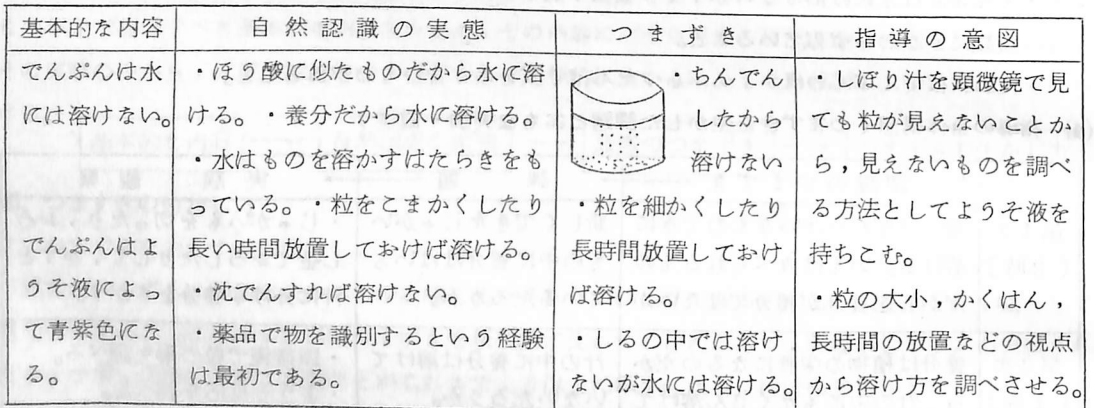 基本的な内容
自然認識の実態
つまずき
指導の意図
でんぷんは水
には溶けない。
でんぷんはよ
うそ液によっ
て青紫色にな
る。
・ほう酸に似たものだから水に溶
ける。・養分だから水に溶ける。
・水はものを溶かすはたらきをも
っている。・粒をこまかくしたり
長い時間放置しておけば溶ける。
・沈でんすれば溶けない。
・薬品で物を識別するという経験
は最初である。
・ちんでん
したから
溶けない
・粒を細かくしたり
長時間放置しておけ
ば溶ける。
・しるの中では溶け
ないが水には溶ける。
・しぼり汁を顕微鏡で見
ても粒が見えないことか
ら，見えないものを調べ
る方法としてようそ液を
持ちこむ。
・粒の大小，かくはん，
長時間の放置などの視点
から溶け方を調べさせる。